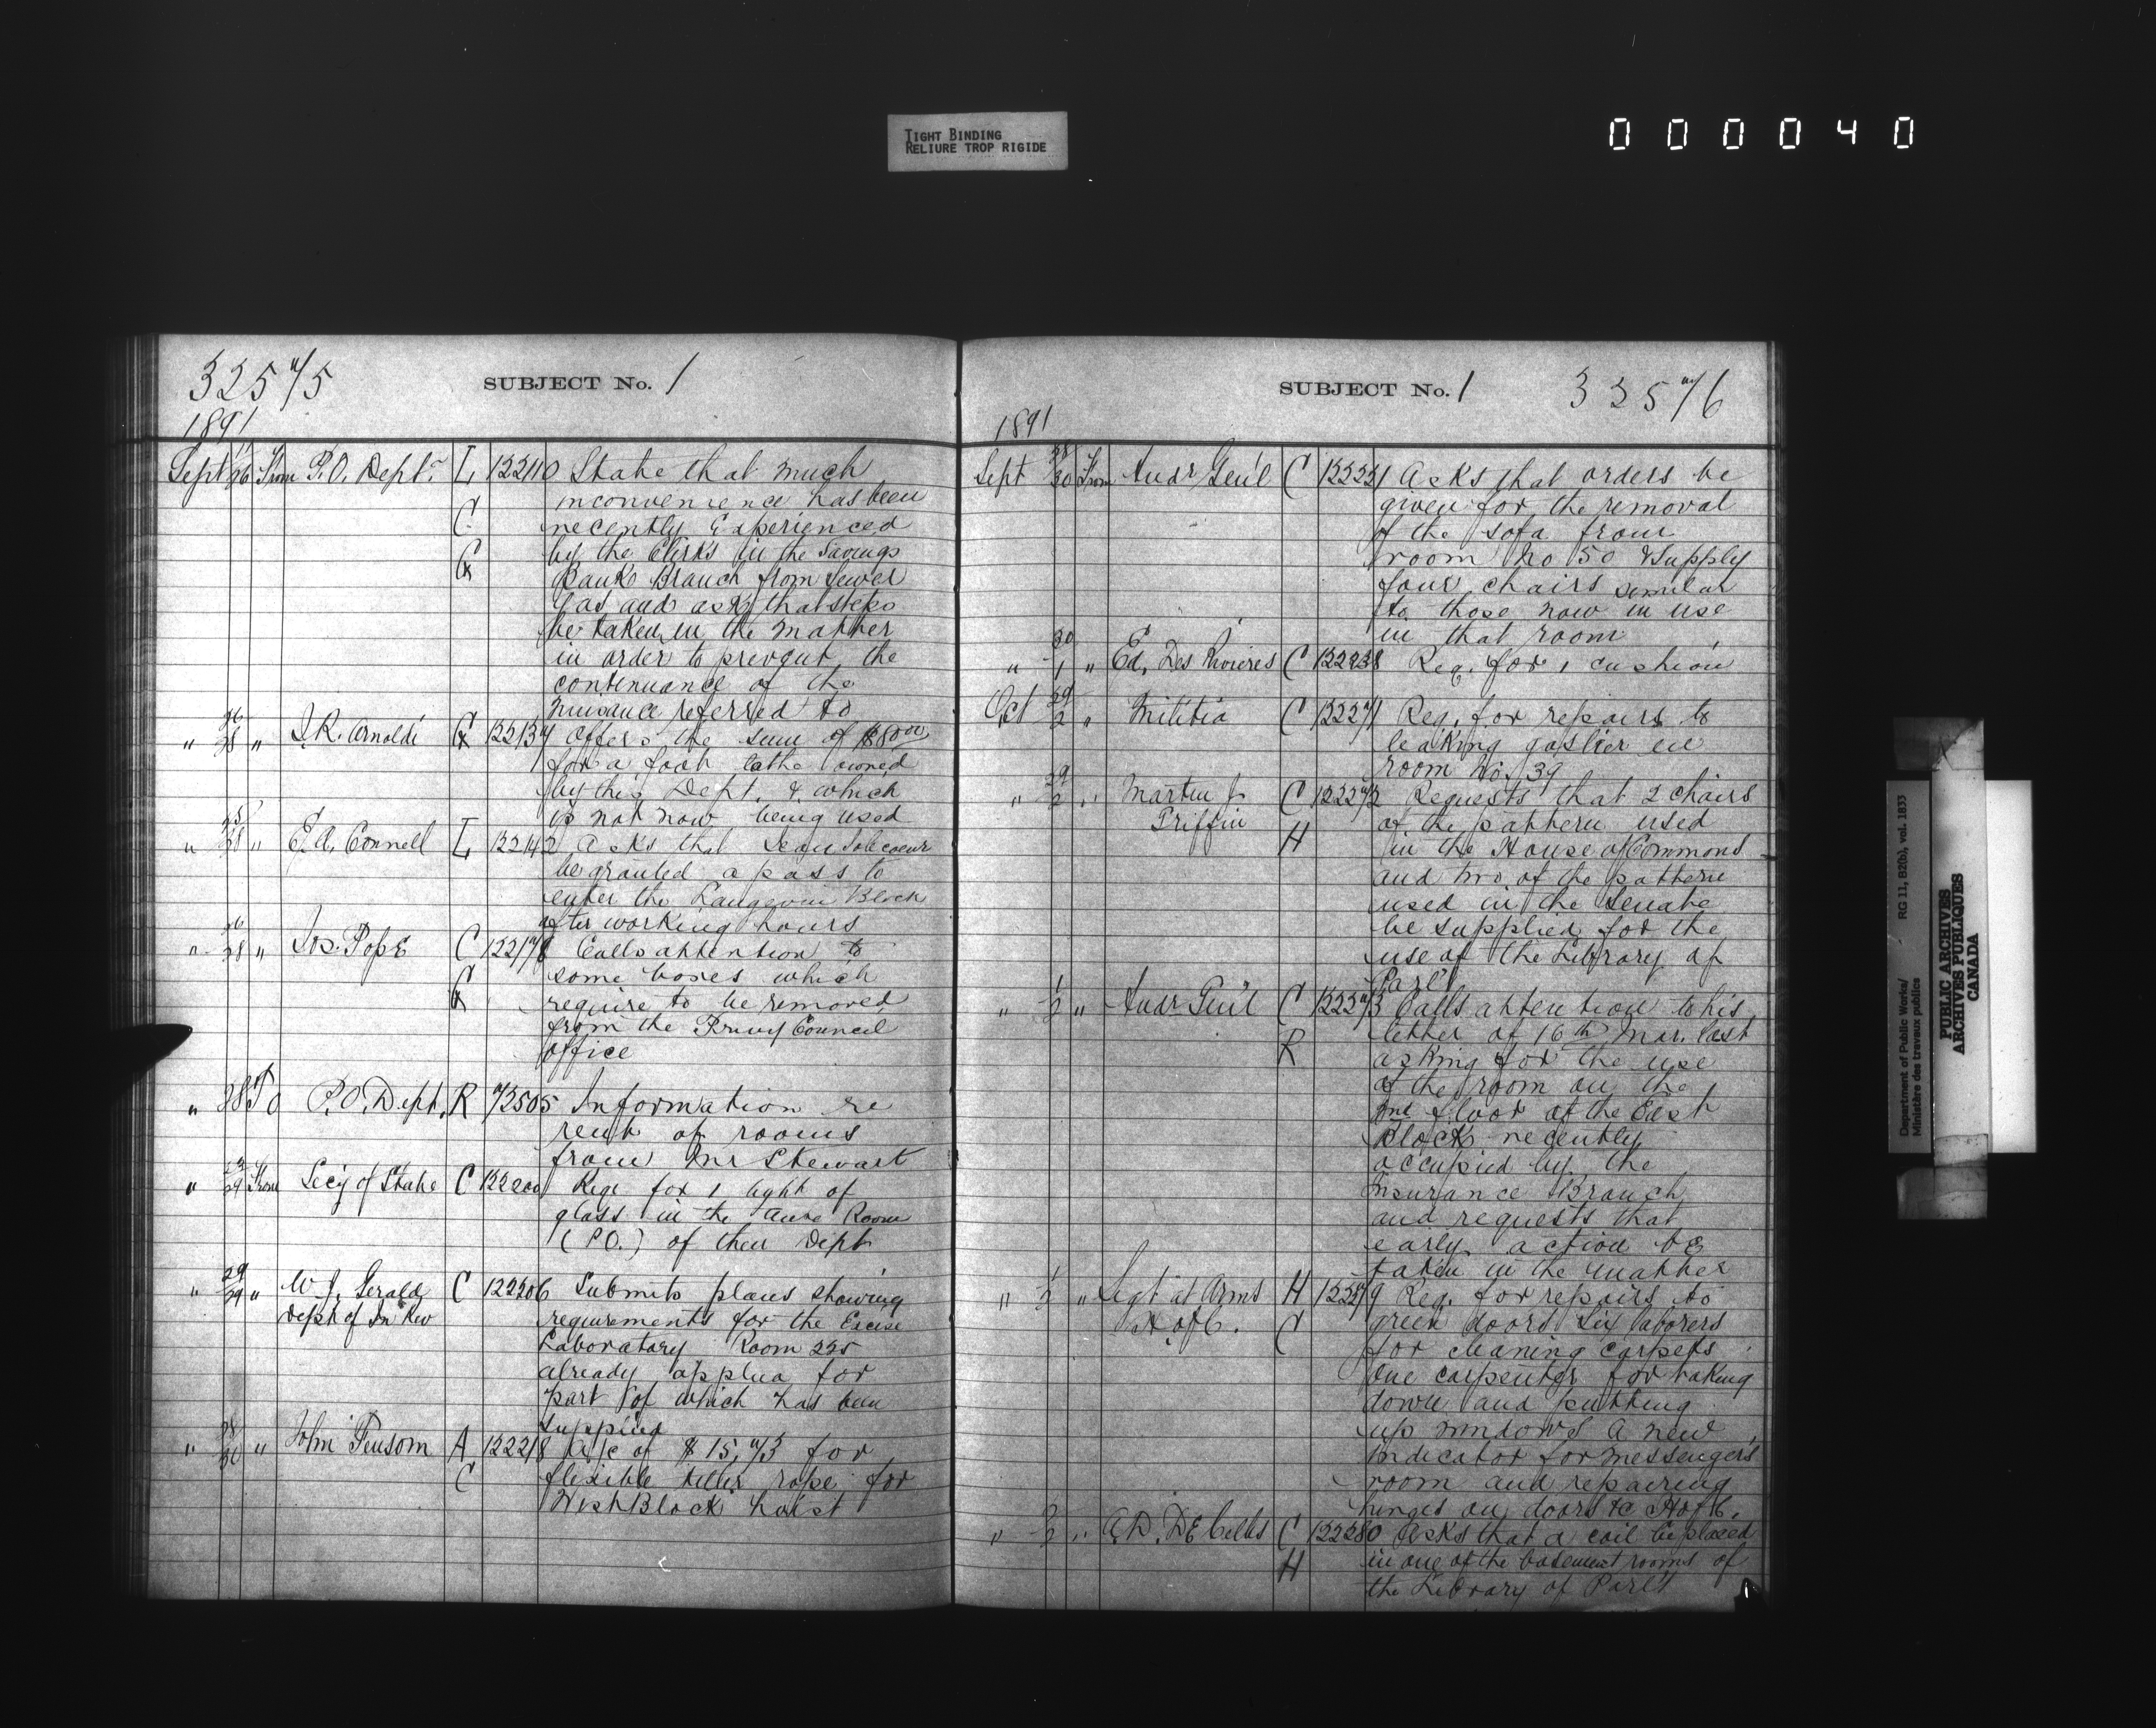 TIGHT BINDING
RELIURE TROP RIGIDE
000040
32575
SUBJECT No. 1
1891
Sept 26 From P.O. Dept. L 122110 State that much
inconvenience has been
C recently Experienced
by the Clerks in the Savings
G Bank Branch from Sewer
Gas and ask that steps
be taken in the matter
in order to prevent the
continuance of the
nuisance referred to
" 26/28 " J.R. Arnoldi G 122137 Offers the sum of $80.00
for a foot lathe owned
by this Dept. & which
is not now being used
" 25/28 " E.A. Connell L 122142 Asks that Jean Jolicoeur
be granted a pass to
enter the Langevin Block
after working hours
" 26/28 " Jos. Pope C 122178 Calls attention to
some boxes which
G require to be removed
from the Privy Council
office
" 28 To P.O. Dept. R 73505 Information re
rent of rooms
from Mr Stewart
" 29 From Secy of State C 122200 Reqe for 1 light of
glass in the Room
(P.O.) of their Dept
" 29/29 " W.J. Gerald C 122206 Submits plans showing
Dept of In Rev requirements for the Excise
Laboratory Room 225
already applied for
part of which has been
supplied
" 28/30 " John Fensom A 122218 A/c of $15.73 for
C flexible tiller rope for
West Block hoist
SUBJECT No. 1
32576
1891
Sept 28/30 From Audr Gen'l C 122221 Asks that orders be
given for the removal
of the sofa from
room No 50 & supply
four chairs similar
to those now in use
in that room
" 30/1 " Ed. Des Rivieres C 122238 Req. for 1 cushion
Oct 29/2 " Militia C 122271 Req. for repairs to
leaking gaslier in
room No. 39
" 29/2 " Martin J. C 122272 Requests that 2 chairs
Griffin of the pattern used
H in the House of Commons
and two of the pattern
used in the Senate
be supplied for the
use of the Library of
Parl't
" 1/2 " Audr Gen'l C 122273 Calls attention to his
letter of 16th Mar. last
R asking for the use
of the room on the
2nd floor of the East
Block recently
occupied by the
Insurance Branch
and requests that
early action be
taken in the matter
" 1/2 " Sergt at Arms H 122279 Req. for repairs to
H of C. C green doors six laborers
for cleaning carpets
one carpenter for taking
down and putting
up windows a new
indicator for messengers
room and repairing
hinges on doors &c H of C.
" 2/2 " A.D. DeCelles C 122280 Asks that a coil be placed
H in one of the basement rooms of
the Library of Parl't
Department of Public Works/
Ministère des travaux publics
RG 11, B2(b), vol. 1833
PUBLIC ARCHIVES
ARCHIVES PUBLIQUES
CANADA